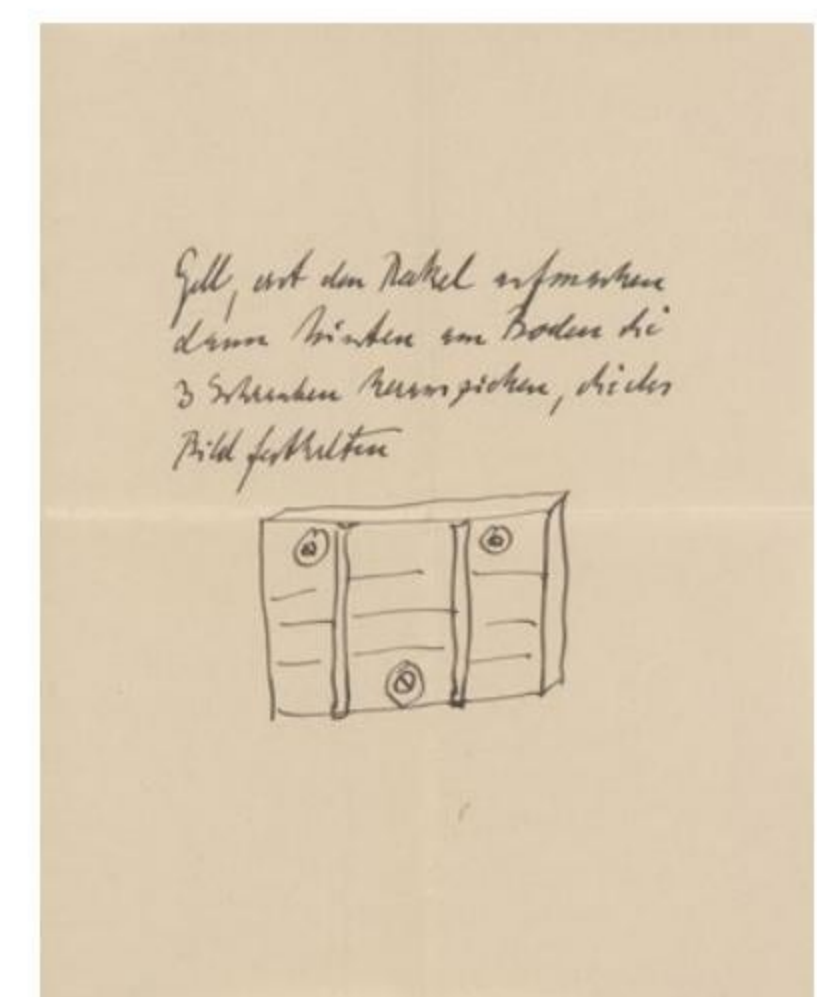 Gell, erst den Deckel aufmachen
dann hinten am Boden die
3 Schrauben herausziehen, die das
Bild festhalten